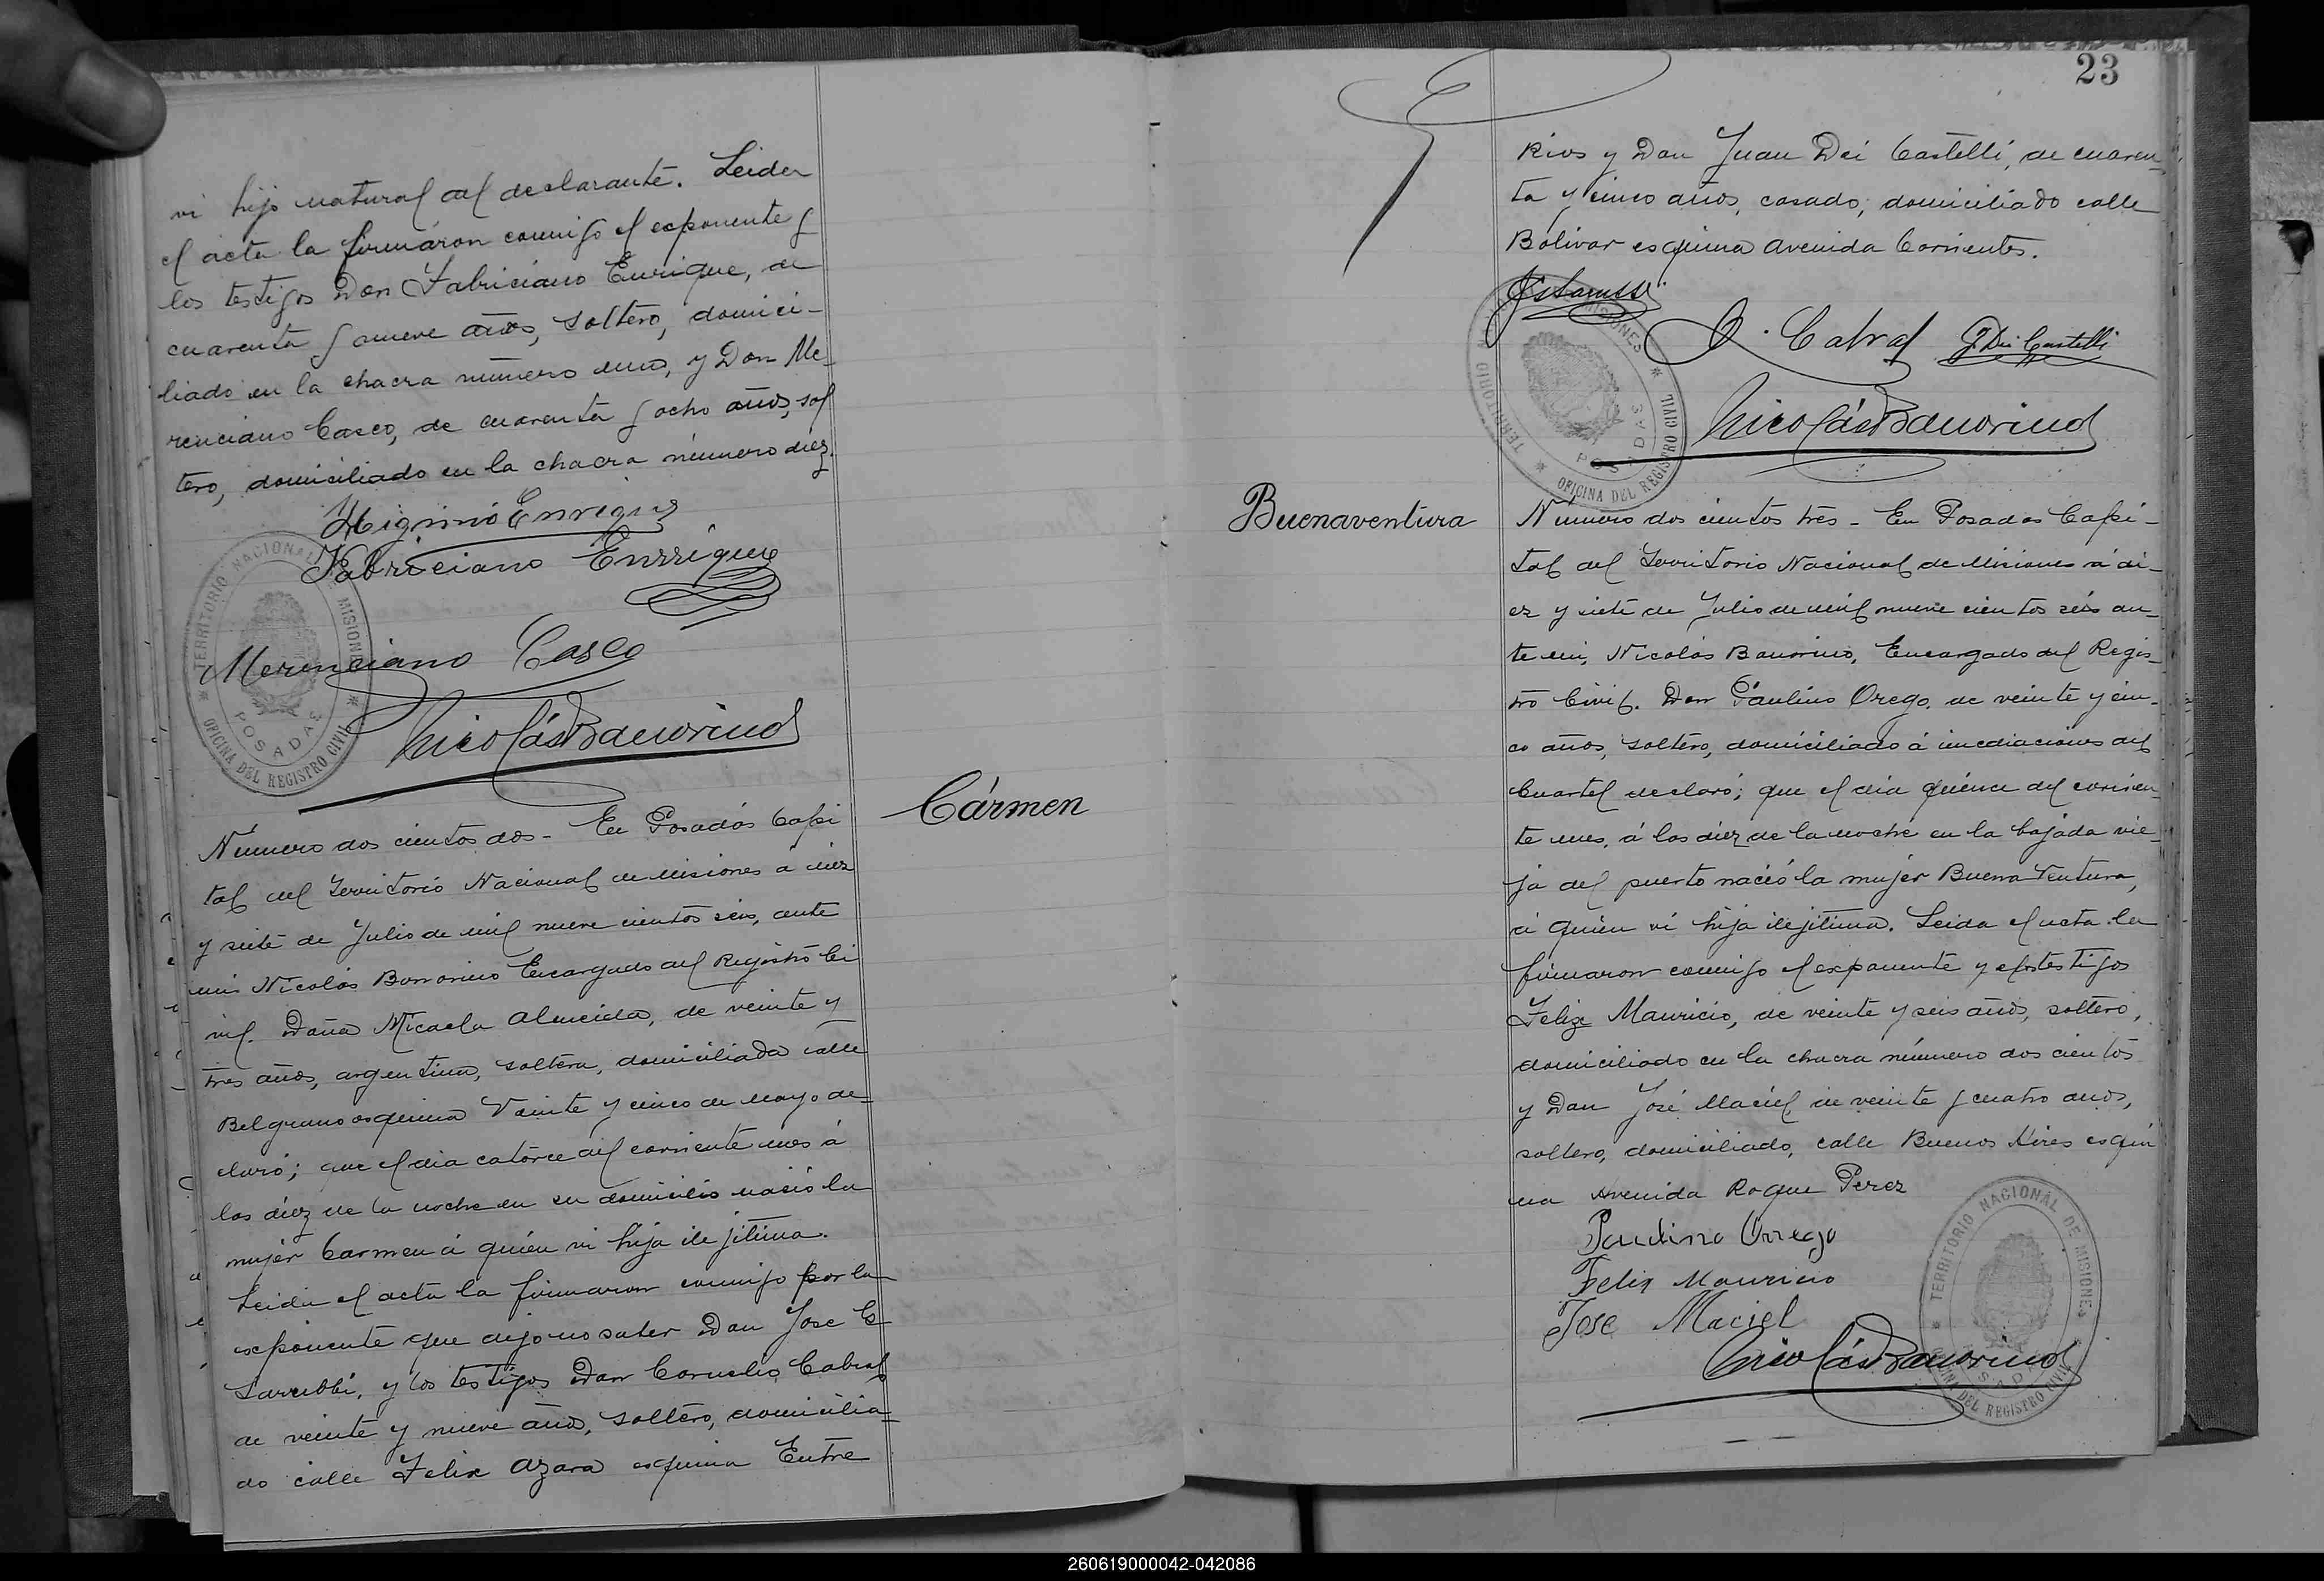 vi hijo natural del declarante. Leida
el acta la firmáron conmigo el exponente y
los testigos Don Fabriciano Enrique, de
cuarenta y nueve años, soltero, domici-
liado en la chacra número uno, y Don Me-
renciano Casco, de cuarenta y ocho años, sol
tero, domiciliado en la chacra número diez.
Higinio Enrique
Fabriciano Enrrique
Merenciano Casco
Nicolás Bavorino
TERRITORIO NACIONAL DE MISIONES
POSADAS
OFICINA DEL REGISTRO CIVIL
Número dos cientos dos - En Posadas Capi
tal del Territorio Nacional de Misiones á diez
y siete de Julio de mil nueve cientos seis, ante
mi Nicolás Bavorino Encargado del Registro Ci
vil. Doña Micaela Almeida, de veinte y
tres años, argentina, soltera, domiciliada calle
Belgrano esquina Veinte y cinco de Mayo de-
claró; que el dia catorce del corriente mes á
las diez de la noche en su domicilio nació la
mujer Carmen á quién vi hija ilejitima.
Leida el acta la firmaron conmigo por la
exponente que dijo no saber Don Jose E
Larubbi, y los testigos Don Cornelio Cabral
de veinte y nueve años, soltero, domicilia-
do calle Felix Azara esquina Entre
Cármen
23
Rios y Don Juan Dei Castelli, de cuaren-
ta y cinco años, casado, domiciliado calle
Bolivar esquina Avenida Corrientes.
C. Cabral J. Dei Castelli
Nicolás Bavorino
TERRITORIO NACIONAL DE MISIONES
POSADAS
OFICINA DEL REGISTRO CIVIL
Buenaventura
Número dos cientos tres - En Posadas Capi-
tal del Territorio Nacional de Misiones á di-
ez y siete de Julio de mil nueve cientos seis an-
te mi, Nicolás Bavorino, Encargado del Regis-
tro Civil. Don Paulino Orego, de veinte y cin-
co años, soltero, domiciliado á inmediaciones del
Cuartel declaró; que el dia quince del corrien-
te mes, á las diez de la noche en la bajada vie-
ja del puerto nació la mujer Buena Ventura,
á quién vi hija ilejitima. Leida el acta la
firmaron conmigo el exponente y los testigos
Felix Mauricio, de veinte y seis años, soltero,
domiciliado en la chacra número dos cientos
y Don José Maciel de veinte y cuatro anos,
soltero, domiciliado, calle Buenos Aires esqui
na Avenida Roque Perez
Paulino Orrego
Felix Mauricio
Jose Maciel
Nicolás Bavorino
TERRITORIO NACIONAL DE MISIONES
POSADAS
OFICINA DEL REGISTRO CIVIL
260619000042-042086